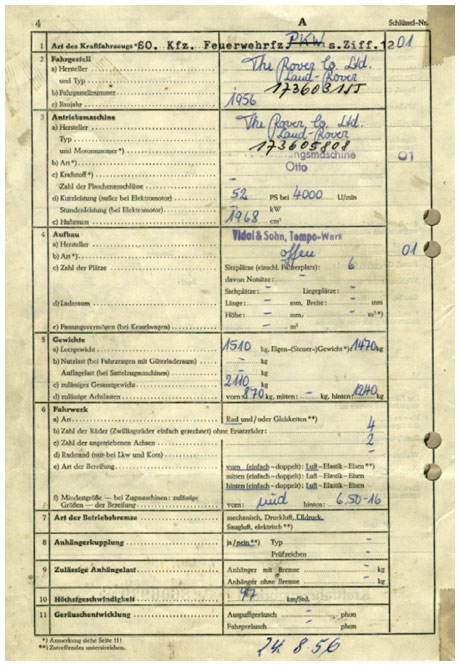 4 A Schlüssel-Nr.
1 Art des Kraftfahrzeugs *SO. Kfz. Feuerwehrfz. PKW s.Ziff.12 01
2 Fahrgestell
a) Hersteller The Rover Co. Ltd.
und Typ Land-Rover
b) Fahrgestellnummer
c) Baujahr 1956
3 Antriebsmaschine
a) Hersteller The Rover Co. Ltd.
Typ Land-Rover
und Motornummer *) 173605808
b) Art *) ngsmaschine 01
Otto
c) Kraftstoff *) –
Zahl der Flaschenanschlüsse
d) Kurzleistung (außer bei Elektromotor) 52 PS bei 4000 U/min
Stundenleistung (bei Elektromotor) – kW
e) Hubraum 1968 cm³
4 Aufbau Vidal & Sohn, Tempo-Werk
a) Hersteller
b) Art *) offen 01
c) Zahl der Plätze Sitzplätze (einschl. Führerplatz): 6
davon Notsitze: –
Stehplätze: – Liegeplätze: –
d) Laderaum Länge: – mm, Breite: – mm
Höhe: – mm, – m³ *)
e) Fassungsvermögen (bei Kesselwagen) – m³
5 Gewichte
a) Leergewicht 1510 kg, Eigen-(Steuer-)Gewicht *) 1470 kg
b) Nutzlast (bei Fahrzeugen mit Güterladeraum) – kg
Aufliegelast (bei Sattelzugmaschinen) – kg
c) zulässiges Gesamtgewicht 2110 kg
d) zulässige Achslasten vorn 870 kg, mitten: – kg, hinten 1240 kg
6 Fahrwerk
a) Art Rad und/oder Gleisketten **)
b) Zahl der Räder (Zwillingsräder einfach gerechnet) ohne Ersatzräder: 4
c) Zahl der angetriebenen Achsen 2
d) Radstand (nur bei Lkw und Kom) –
e) Art der Bereifung vorn (einfach – doppelt): Luft – Elastik – Eisen **)
mitten (einfach – doppelt): Luft – Elastik – Eisen
hinten (einfach – doppelt): Luft – Elastik – Eisen
f) Mindestgröße — bei Zugmaschinen: zulässige
Größen — der Bereifung vorn: und hinten: 6.50-16
7 Art der Betriebsbremse mechanisch, Druckluft, Öldruck,
Saugluft, elektrisch **)
8 Anhängerkupplung ja/nein **) Typ –
Prüfzeichen –
9 Zulässige Anhängelast Anhänger mit Bremse – kg
Anhänger ohne Bremse – kg
10 Höchstgeschwindigkeit 97 km/Std.
11 Geräuschentwicklung Auspuffgeräusch – phon
Fahrgeräusch – phon
*) Anmerkung siehe Seite 11!
**) Zutreffendes unterstreichen.
24. 8. 56